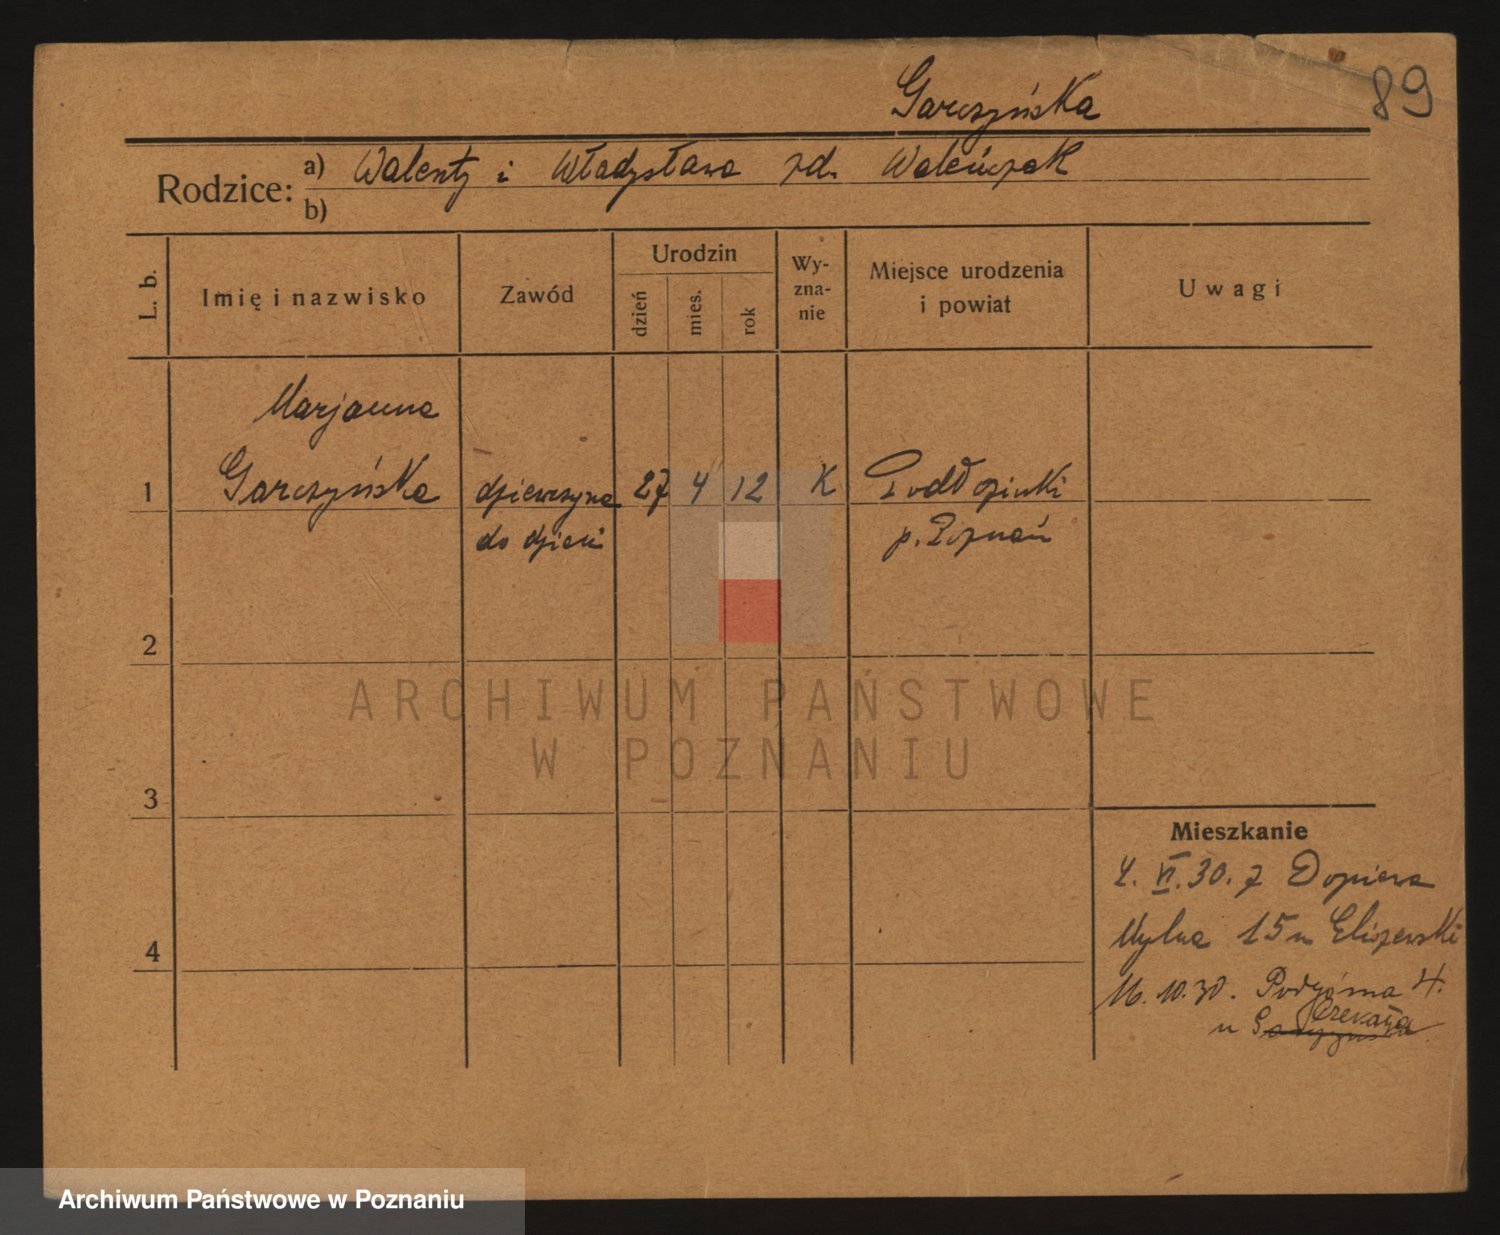 Garczyńska
89
Rodzice: a) Walenty i Władysława zd. Waleńczak
b)
L. b.
Imię i nazwisko
Zawód
Urodzin
dzień
mies.
rok
Wy-
zna-
nie
Miejsce urodzenia
i powiat
Uwagi
Marjanna
1 Garczyńska dziewczyna 27 4 12 K Podłoziny
do dzieci p. Poznań
2
ARCHIWUM PAŃSTWOWE
W POZNANIU
3
Mieszkanie
4. VI. 30. z Dopiewa
Mylna 15 u Eliszewski
4
16. 10. 30. Podgórna 4.
u Czekała
Archiwum Państwowe w Poznaniu